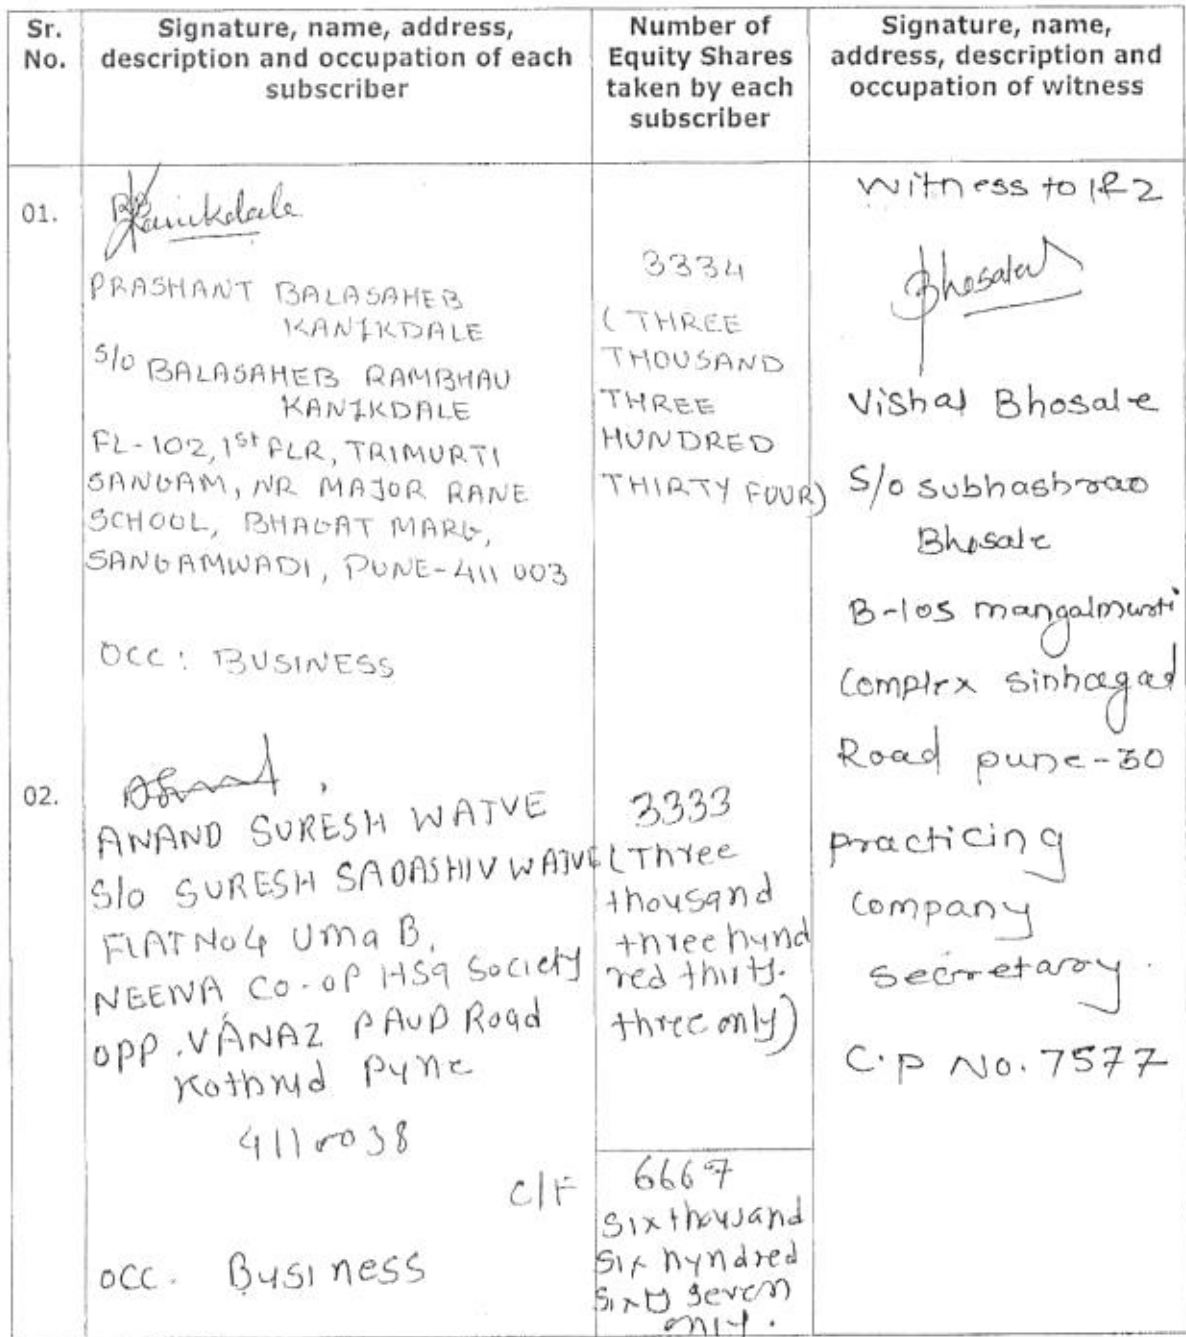 Sr. No.
Signature, name, address, description and occupation of each subscriber
Number of Equity Shares taken by each subscriber
Signature, name, address, description and occupation of witness
01.
Kanikdale
PRASHANT BALASAHEB
KANIKDALE
S/o BALASAHEB RAMBHAU
KANIKDALE
FL-102, 1st FLR, TRIMURTI
SANGAM, NR MAJOR RANE
SCHOOL, BHAGAT MARG,
SANGAMWADI, PUNE-411 003
OCC: BUSINESS
3334
(THREE
THOUSAND
THREE
HUNDRED
THIRTY FOUR)
Witness to 1&2
Bhosale
Vishal Bhosale
S/o subhashrao
Bhosale
B-105 mangalmurti
Complex sinhagad
Road pune-30
practicing
Company
Secretary.
C.P No. 7577
02.
ANAND SURESH WATVE
S/o SURESH SADASHIV WATVE
FLAT No 4 Uma B,
NEENA CO-OP HSg Society
OPP. VANAZ PAUD Road
Kothrud Pune
411 0038
C/F
OCC. Business
3333
(Three
thousand
three hund
red thirty.
three only)
6667
Six thousand
Six hundred
Sixty seven
only.